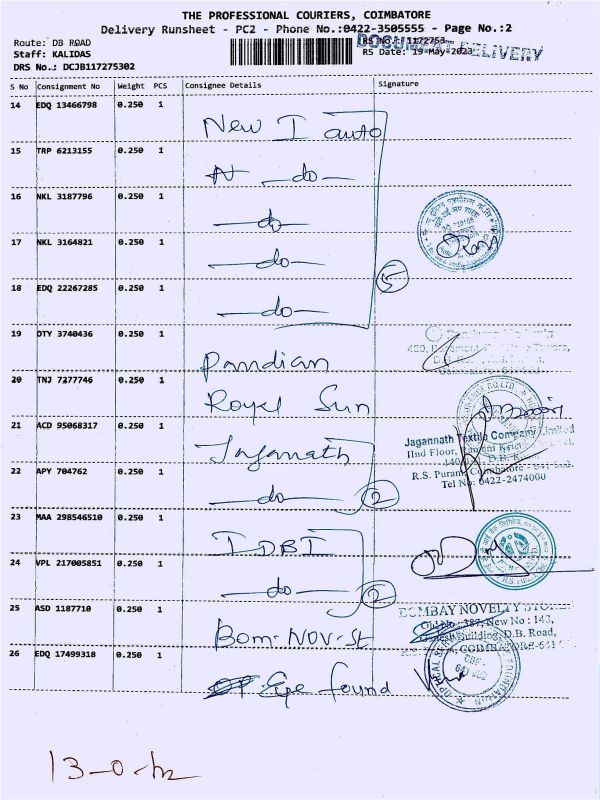 THE PROFESSIONAL COURIERS, COIMBATORE
Delivery Runsheet - PC2 - Phone No.:0422-3505555 - Page No.:2
Route: DB ROAD
RS No.: 1172753
DOCUMENT DELIVERY
Staff: KALIDAS
RS Date: 19-May-2023
DRS No.: DCJB117275302
S No Consignment No Weight PCS Consignee Details Signature
14 EDQ 13466798 0.250 1
New I auto
15 TRP 6213155 0.250 1
-do-
16 NKL 3187796 0.250 1
-do-
17 NKL 3164821 0.250 1
-do-
18 EDQ 22267285 0.250 1
5
-do-
19 DTY 3740436 0.250 1
Pandian
20 TNJ 7277746 0.250 1
Royal Sun
21 ACD 95068317 0.250 1
Jagannath
Jagannath Textile Company Limited
IInd Floor,
22 APY 704762 0.250 1
R.S. Puram, Coimbatore - 641
Tel No: 0422-2474000
-do- 2
23 MAA 298546510 0.250 1
IDBI
24 VPL 217005851 0.250 1
-do- 2
25 ASD 1187710 0.250 1
BOMBAY NOVELTY STORE
Old No: 387, New No: 143,
Building, D.B. Road,
COIMBATORE-641
Bom. Nov. St
26 EDQ 17499318 0.250 1
Eye found